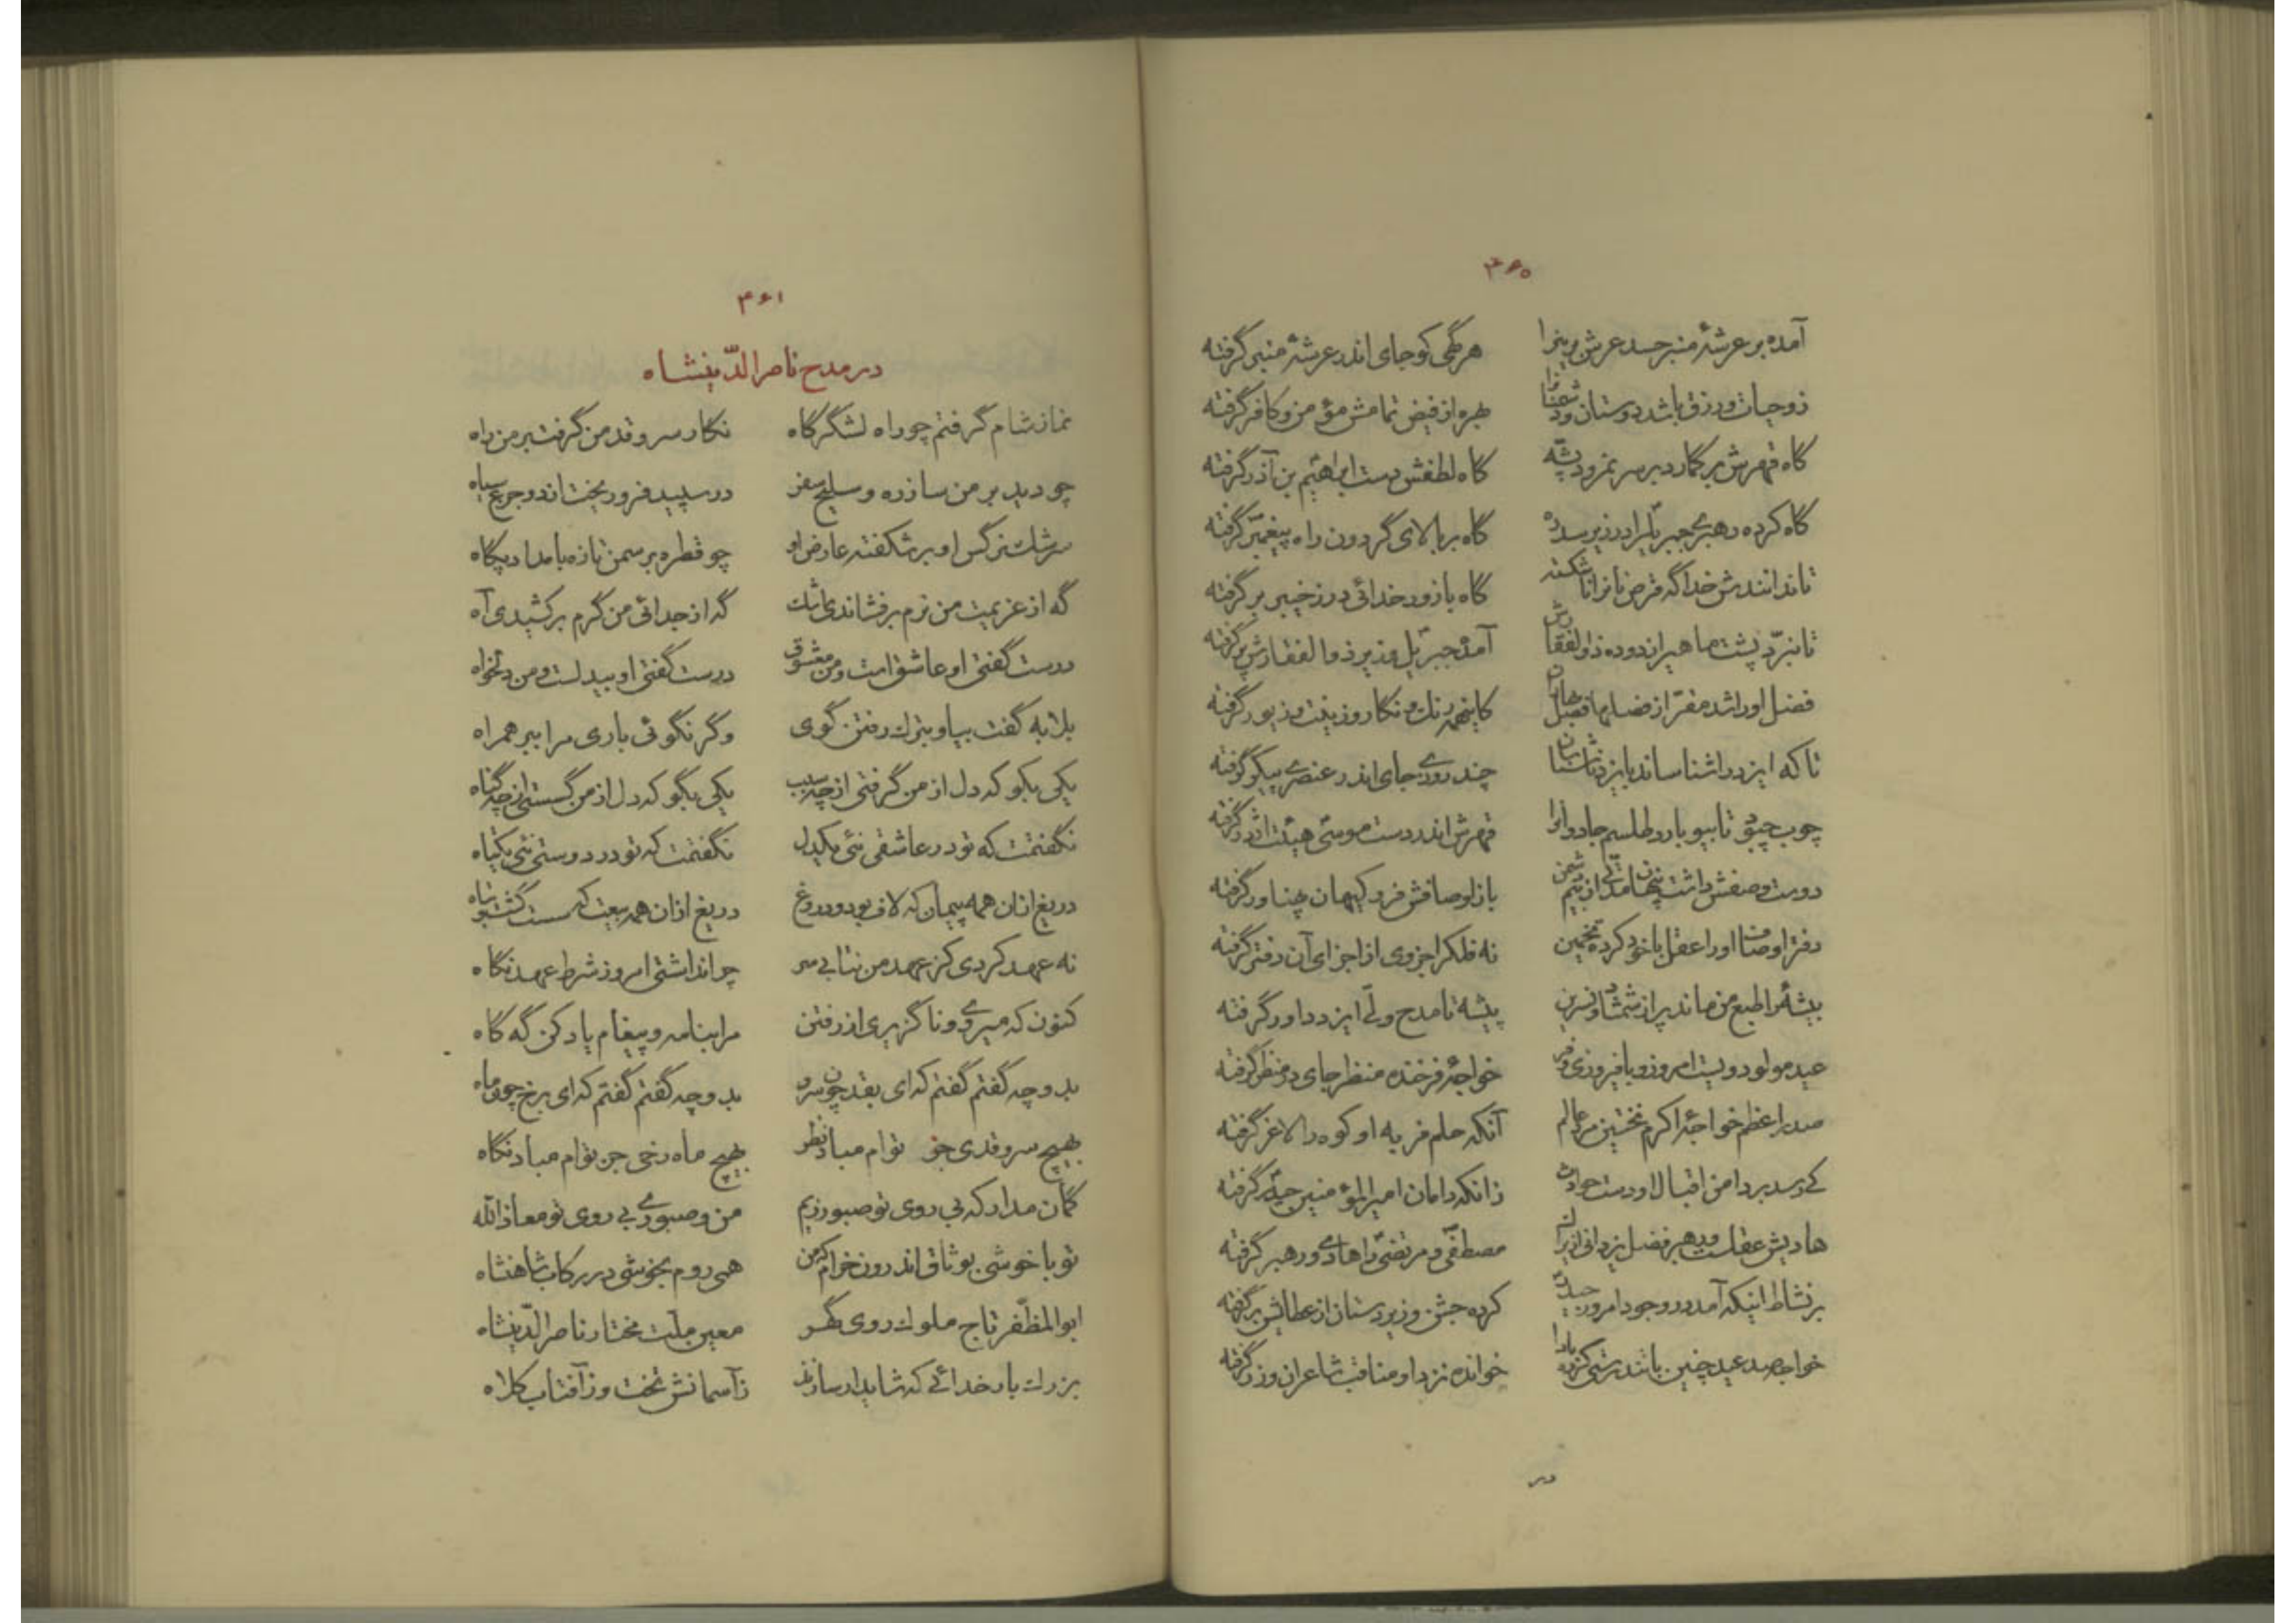 ۳۶۰
آمده بر عرشهٔ منبر حسد عرش برین را هر گهی کو جای اندر عرشهٔ منبر گرفته
زو حیات و رزق باشد دوستان و دشمنان را بهره از فیض تمامش مؤمن و کافر گرفته
گاه قهرش بر گمارد بر سر نمرود پشه گاه لطفش دست ابراهیم بن آذر گرفته
گاه کرده رهبری جبریل را در زیر سدره گاه بر بالای گردون راه پیغمبر گرفته
تا ندانندش خدا گه قرص نانرا ناشکسته گاه با زور خدائی در ز خیبر بر گرفته
تا نبرّد پشت ماهی را ز دوده ذوالفقارش آمده جبریل و زیر ذوالفقارش پر گرفته
فضل او را شد مقر از فضلها فضل کاینهمه رنگ و نگار و زینت و زیور گرفته
تا که ایزد را شناساند بایزد ناشناسان چند روزی جای اندر عنصری پیکر گرفته
چوب چبود تا بیوبارد طلسم جادوانرا قهرش اندر دست موسی هیئت اژدر گرفته
دوست وصفش داشت پنهان مدتی از بیم دشمن باز اوصافش فرو کیهان پهناور گرفته
دفتر اوصاف او را عقل با خود کرده تخمین نه فلک را جزوی از اجزای آن دفتر گرفته
بیشهٔ را طبع من ماند پر از شمشاد و نسرین پیشه تا مدح ولّی ایزد داور گرفته
عید مولود ویست امروز و با فیروزی و فر خواجهٔ فرخنده منظر جای در منظر گرفته
صدر اعظم خواجهٔ اکرم نخستین مرد عالم آنکه حلم فربه او کوه را لاغر گرفته
کی رسد بر دامن اقبال او دست حوادث زانکه دامان امیر المؤمنین حیدر گرفته
هادیش عقلست و رهبر فضل یزدانی ازیرا مصطفی و مرتضی را هادی و رهبر گرفته
بر نشاط اینکه آمد در وجود امروز حیدر کرده جشن و زیردستان از عطایش بر گرفته
خواجه صد عید چنین باتندرستی کرده بادا خوانده نزد او مناقب شاعران و زر گرفته
در
۳۶۱
در مدح ناصرالدّینشاه
نماز شام گرفتم چو راه لشگرگاه نگار سرو قد من گرفت بر من راه
چو دید بر من ساز ره و سلیح سفر در سپید فرو ریخت اندو جزع سیاه
سرشک نرگس او بر شکفته عارض او چو قطره بر سمن تازه بامداد پگاه
گه از عزیمت من نرم بر فشاندی اشک گه از جدائی من گرم برکشیدی آه
درست گفتی او عاشق است و من معشوق درست گفتی او بیدلست و من دلخواه
بلابه گفت بیا و بترک رفتن گوی وگر نگوئی باری مرا ببر همراه
یکی بگو که دل از من گرفتی از چه سبب یکی بگو که دل از من گسستی از چه گناه
نگفتمت که تو در عاشقی نئی یکدل نگفتمت که تو در دوستی نئی یکتاه
دریغ ازان همه پیمان که لاف بود و دروغ دریغ ازان همه بیعت که سست گشت و تباه
نه عهد کردی کز عهد من نتابی سر چرا نداشتی امروز شرط عهد نگاه
کنون که میروی و ناگزیری از رفتن مرا بنامه و پیغام یاد کن گه گاه
بدو چه گفتم گفتم که ای بقد چون سرو بدو چه گفتم گفتم که ای برخ چون ماه
بهیچ سرو قدی جز توام مباد نظر بهیچ ماه رخی جز توام مباد نگاه
گمان مدار که بی روی تو صبور زیم من و صبوری بی روی تو معاذ الله
تو با خوشی بوثاق اندرون خرام که من همی روم بخوشی در رکاب شاهنشاه
ابوالمظفّر تاج ملوک روی گهر معین ملّت مختار ناصرالدّینشاه
بزرگ بار خدائی که شاید ار سازند ز آسمانش تخت و ز آفتاب کلاه